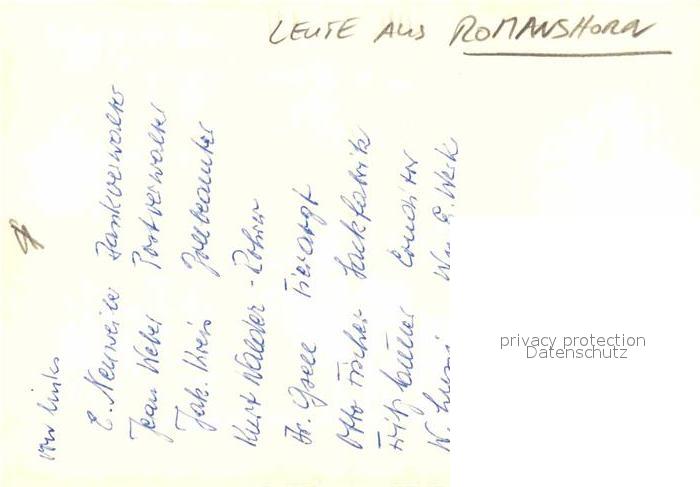 LEUTE AUS ROMANSHORN
von links
E. Neuweiler Bankverwalter
Jean Weber Postverwalter
Jak. Kreis Zollbeamter
Kurt Walder - Rohrer
Dr. Gsell Tierarzt
Otto Fischer Lackfabrik
Fritz Conditor
W. W. & E. Werk
privacy protection
Datenschutz